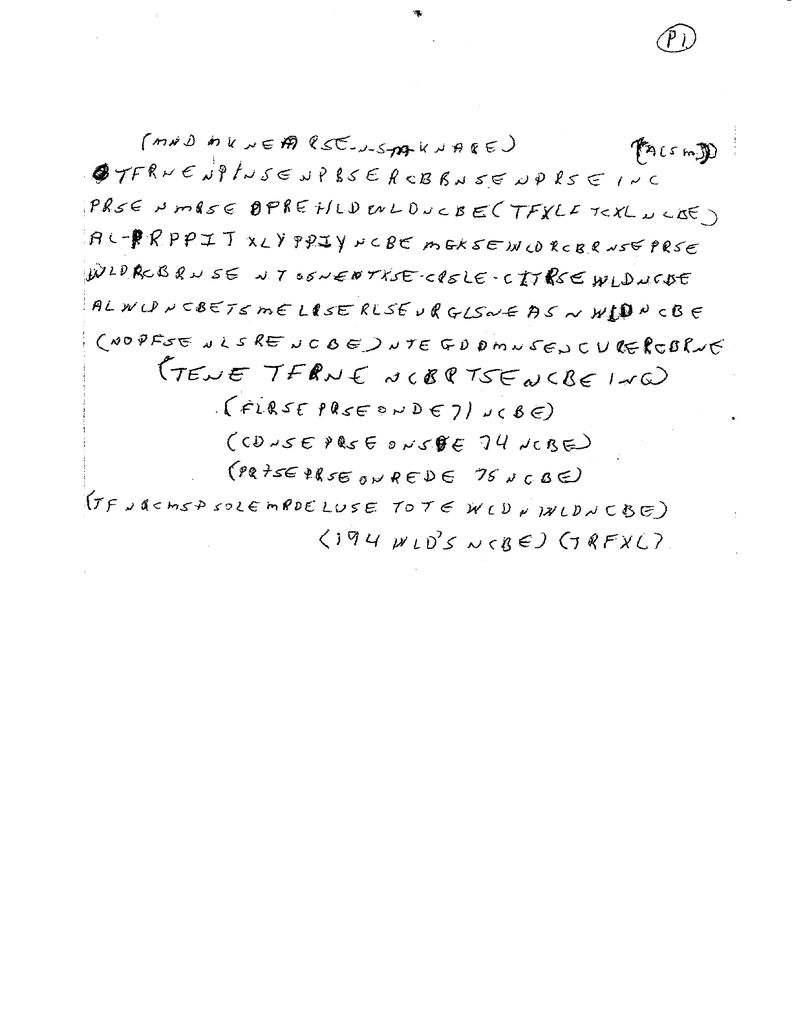 P1
(MND MKNEARSE-N-S-M-KNARE) (ACSM)
TFRNENPINSENPBSERCBBRNSENPRSEINC
PRSENMRSEOPREHLDWLDNCBE(TFXLF TCXLNCBE)
AL-PRPPIT XLYPPIYNCBE MGKSEWLDRCBRNSEPRSE
WLDRCBRNSE NTOSNENTXSE-CRSLE-CITRSEWLDNCBE
ALWLDNCBETSMELRSERLSEURGLSNEASNWLDNCBE
(NOPFSENLSRENCBE)NTEGDDMNSENCURERCBRNE
(TENE TFRNE NCBRTSENCBEING)
(FLRSEPRSEONDE71NCBE)
(CDNSEPRSEONSDE 74 NCBE)
(PR7SEPRSEONREDE 75 NCBE)
(TFNQCMSPSOLEMRDELUSE TOTE WLDNWLDNCBE)
(194 WLD'S NCBE) (TRFXL)